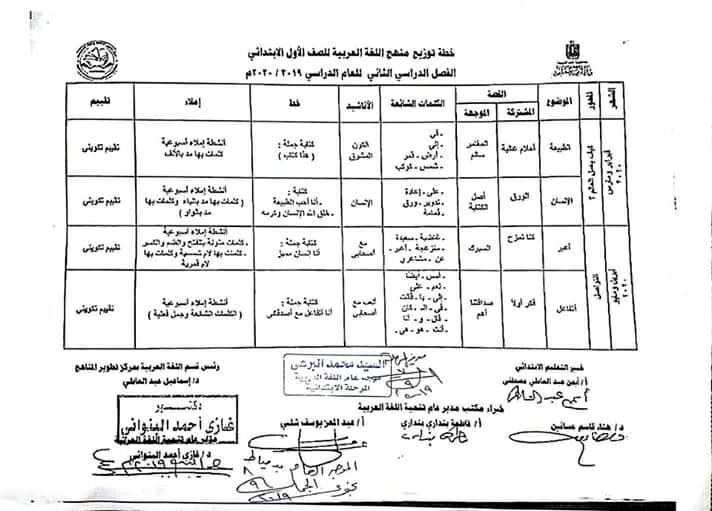 خطة توزيع منهج اللغة العربية للصف الأول الابتدائي
الفصل الدراسي الثاني للعام الدراسي ٢٠١٩ / ٢٠٢٠م
الشهر
المحور
الموضوع
القصة
المشتركة
الموجهة
الكلمات الشائعة
الأناشيد
خط
إملاء
تقييم
فبراير ومارس ٢٠٢٠
كيف يعمل العالم ؟
الطبيعة
أحلام علية
المغامر سالم
في - إلى - أرض - قمر - شمس - كوكب
الكون المشوق
كتابة جملة :
( هذا كتاب )
أنشطة إملاء أسبوعية
كلمات بها مد بالألف
تقييم تكويني
الإنسان
الورق
أصل الكتابة
على - إعادة تدوير - ورق - قمامة
الإنسان
كتابة :
- أنا أحب الطبيعة
- خلق الله الإنسان وكرمه
أنشطة إملاء أسبوعية
( كلمات بها مد بالياء وكلمات بها مد بالواو )
تقييم تكويني
أبريل ومايو ٢٠٢٠
التواصل
أعبر
كنا نمزح
السيرك
غاضبة - سعيدة - منزعجة - أعبر - عن - مشاعري
مع أصحابي
كتابة جملة :
أنا إنسان مميز
أنشطة إملاء أسبوعية
كلمات منونة بالفتح والضم والكسر
كلمات بها لام شمسية وكلمات بها لام قمرية
تقييم تكويني
أتفاعل
فكر أولاً
صداقتنا أهم
أمس - أيضا - نعم - على - إلى - يا - قالت - في - الـ - كان - قال - و - أنا - أنت - هو - هي
ألعب مع أصحابي
كتابة جملة :
أنا أتفاعل مع أصدقائي
أنشطة إملاء أسبوعية
( الكلمات الشائعة وجمل فعلية )
تقييم تكويني
خبير التعليم الابتدائي
أ/ أيمن عبد العاطي مصطفى
السيد محمد البرشي
موجه عام اللغة العربية
المرحلة الابتدائية
رئيس قسم اللغة العربية بمركز تطوير المناهج
د/ إسماعيل عبد العاطي
خبراء مكتب مدير عام تنمية اللغة العربية
د / هناء قاسم حسانين
أ/ فاطمة بنداري بنداري
أ / عبد المعز يوسف شلبي
دكتور
غازي أحمد البنواني
مدير عام تنمية اللغة العربية
د / غازي أحمد البنواني
الموجه العام بدمياط
٢٠١٩